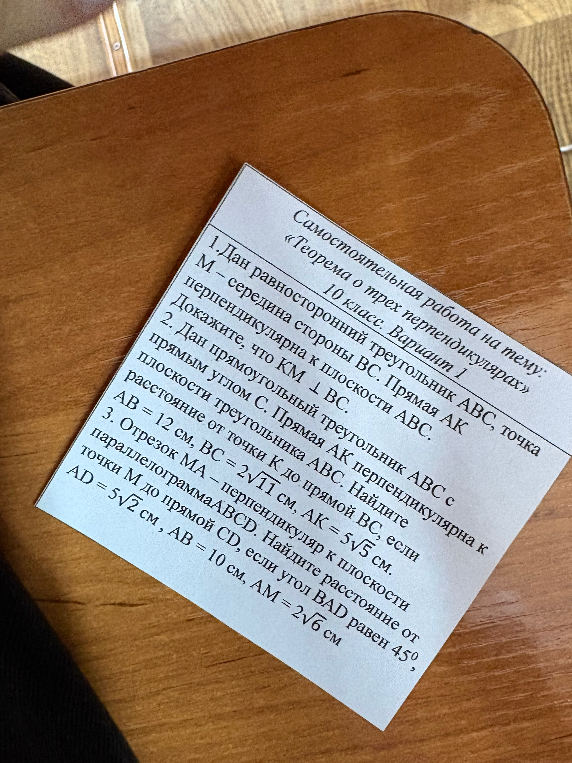 Самостоятельная работа на тему:
«Теорема о трех перпендикулярах»
10 класс. Вариант 1
1.Дан равносторонний треугольник АВС, точка
М – середина стороны ВС. Прямая АК
перпендикулярна к плоскости АВС.
Докажите, что КМ ⊥ ВС.
2. Дан прямоугольный треугольник АВС с
прямым углом С. Прямая АК перпендикулярна к
плоскости треугольника АВС. Найдите
расстояние от точки К до прямой ВС, если
АВ = 12 см, ВС = 2√11 см, АК = 5√5 см.
3. Отрезок МА – перпендикуляр к плоскости
параллелограммаABCD. Найдите расстояние от
точки М до прямой CD, если угол BAD равен 45⁰,
AD = 5√2 см , АВ = 10 см, АМ = 2√6 см